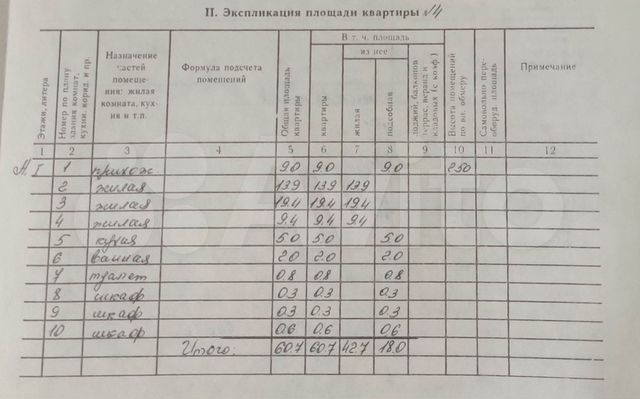 II. Экспликация площади квартиры №4
Этажи, литера
Номер по плану здания комнат, кухни, корид. и пр.
Назначение частей помещения: жилая комната, кухня и т.п.
Формула подсчета помещений
Общая площадь квартиры
В т. ч. площадь
квартиры
из нее
жилая
подсобная
лоджий, балконов террас, веранд и кладовых (с коэф.)
Высота помещений по вн. обмеру
Самовольно переоборуд. площадь
Примечание
1 2 3 4 5 6 7 8 9 10 11 12
I 1 прихож 9.0 9.0 9.0 2.50
2 жилая 13.9 13.9 13.9
3 жилая 19.4 19.4 19.4
4 жилая 9.4 9.4 9.4
5 кухня 5.0 5.0 5.0
6 ванная 2.0 2.0 2.0
7 туалет 0.8 0.8 0.8
8 шкаф 0.3 0.3 0.3
9 шкаф 0.3 0.3 0.3
10 шкаф 0.6 0.6 0.6
Итого: 60.7 60.7 42.7 18.0